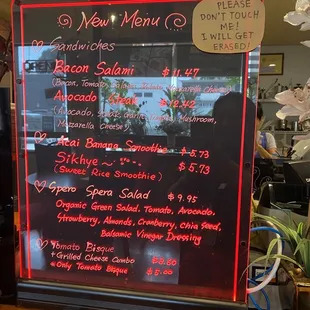 New Menu
PLEASE
DON'T TOUCH
ME!
I WILL GET
ERASED!
Sandwiches
Bacon Salami $11.47
(Bacon, Tomato,
Avocado Steak $12.42
(Avocado, Steak, Mushroom,
Mozzarella Cheese)
Acai Banana Smoothie $5.73
Sikhye ~ $5.73
(Sweet Rice Smoothie)
Spero Spera Salad $9.95
Organic Green Salad, Tomato, Avocado,
Strawberry, Almonds, Cranberry, chia Seed,
Balsamic Vinegar Dressing
Tomato Bisque
+ Grilled Cheese Combo
Only Tomato bisque $5.00